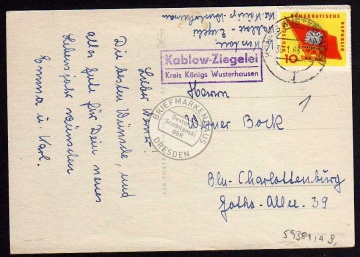 Kablow-Ziegelei
Kreis Königs Wusterhausen
DEMOKRATISCHE
REPUBLIK
10
Lieber Werner!
Die besten Wünsche und
alles Gute für Dein neues
Lebensjahr wünschen
Emma u. Karl.
BRIEFMARKENHAUS
DDR
DRESDEN
Herrn
Werner Bock
Bln-Charlottenburg
Gotha-Allee 39
1